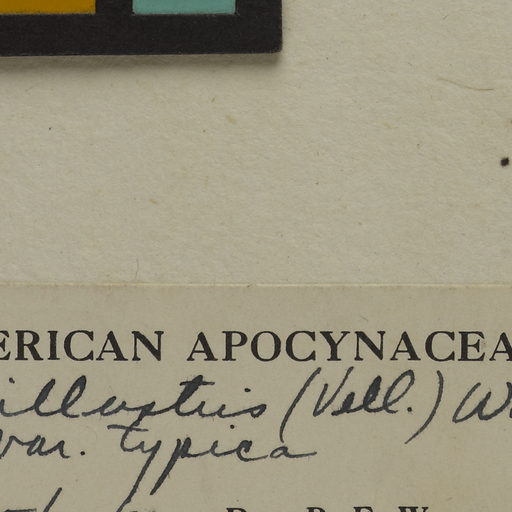 ERICAN APOCYNACEA
illustris (Vell.) W
var. typica